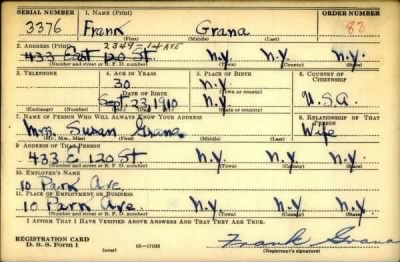 SERIAL NUMBER 1. NAME (Print) ORDER NUMBER
3376 Frank Grana 83
(First) (Middle) (Last)
2. ADDRESS (Print) 2349 - 1st AVE
433 East 120 St N.Y. N.Y. N.Y.
(Number and street or R. F. D. number) (Town) (County) (State)
3. TELEPHONE 4. AGE IN YEARS 5. PLACE OF BIRTH 6. COUNTRY OF CITIZENSHIP
30 N.Y.
DATE OF BIRTH (Town or county)
Sept. 23, 1910 N.Y. U.S.A.
(Exchange) (Number) (Mo.) (Day) (Yr.) (State or country)
7. NAME OF PERSON WHO WILL ALWAYS KNOW YOUR ADDRESS 8. RELATIONSHIP OF THAT PERSON
Mrs. Susan Grana Wife
(Mr., Mrs., Miss) (First) (Middle) (Last)
9. ADDRESS OF THAT PERSON
433 E. 120 St N.Y. N.Y. N.Y.
(Number and street or R. F. D. number) (Town) (County) (State)
10. EMPLOYER'S NAME
10 Park Ave.
11. PLACE OF EMPLOYMENT OR BUSINESS
10 Park Ave. N.Y. N.Y.
(Number and street or R. F. D. number) (Town) (County) (State)
I AFFIRM THAT I HAVE VERIFIED ABOVE ANSWERS AND THAT THEY ARE TRUE.
REGISTRATION CARD
D. S. S. Form 1 (over) 16-17105 Frank Grana
(Registrant's signature)